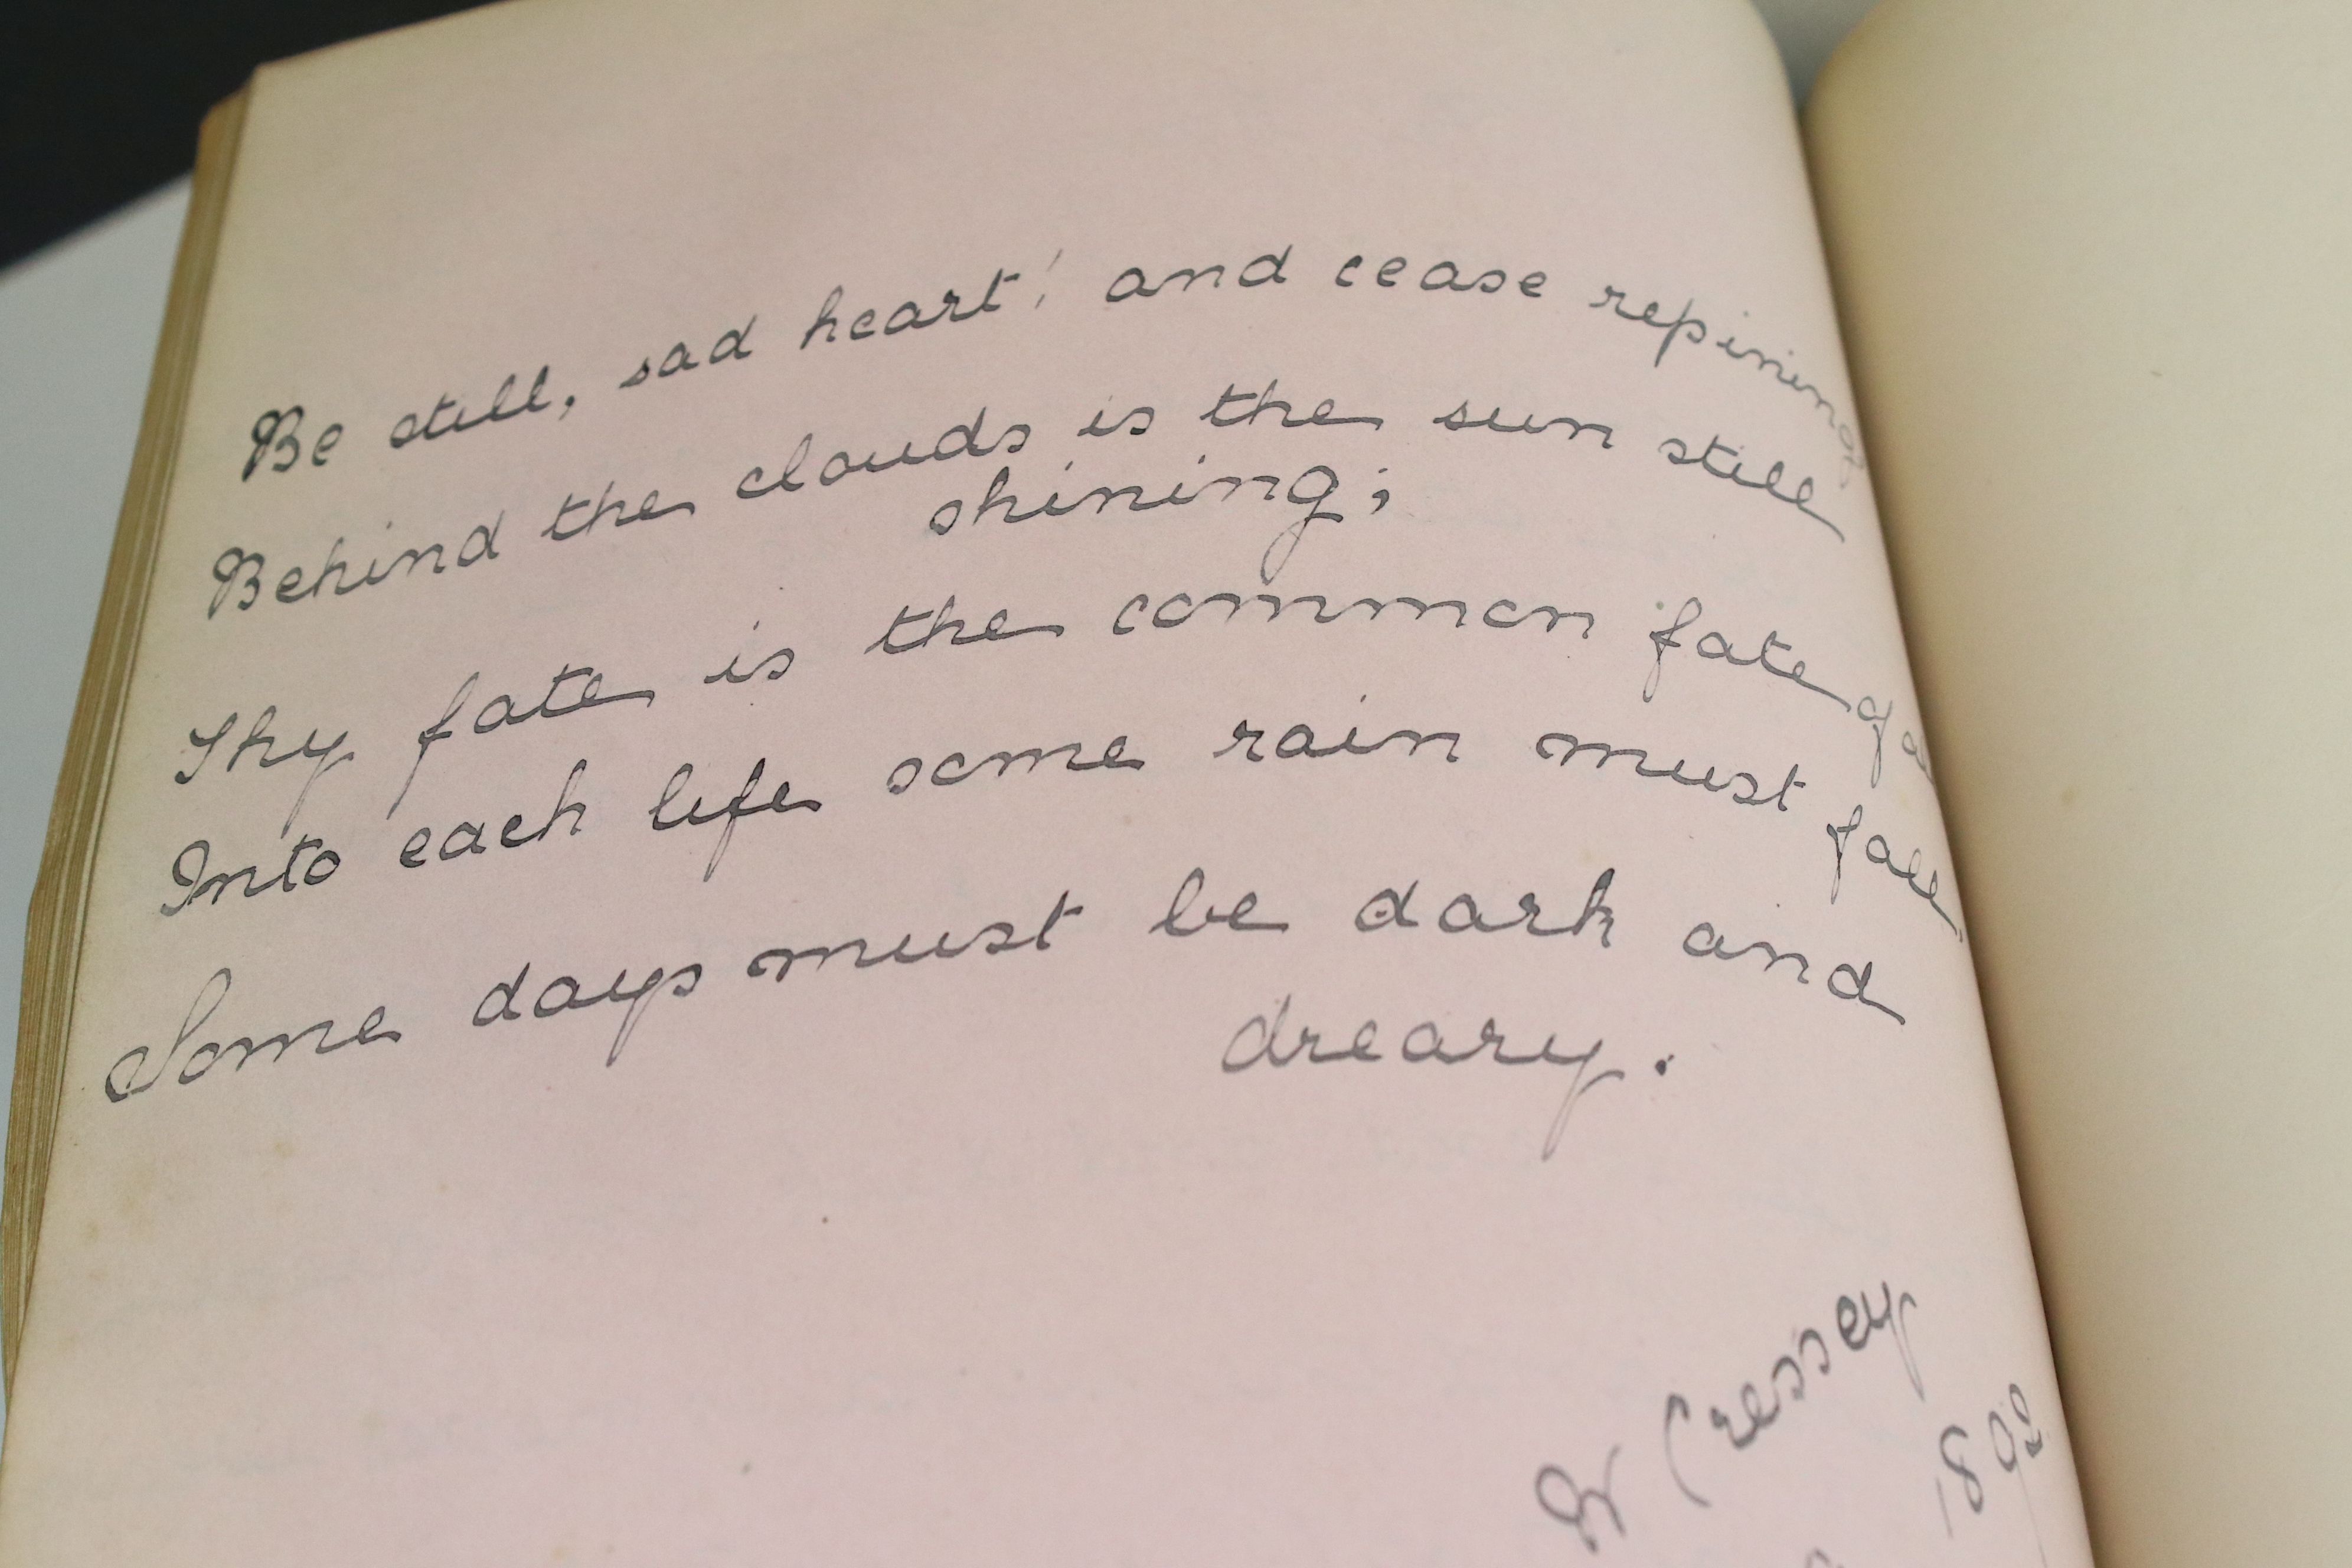 Be still, sad heart! and cease repining
Behind the clouds is the sun still
shining;
Thy fate is the common fate of
Into each life some rain must fall
Some days must be dark and
dreary.
Cressey